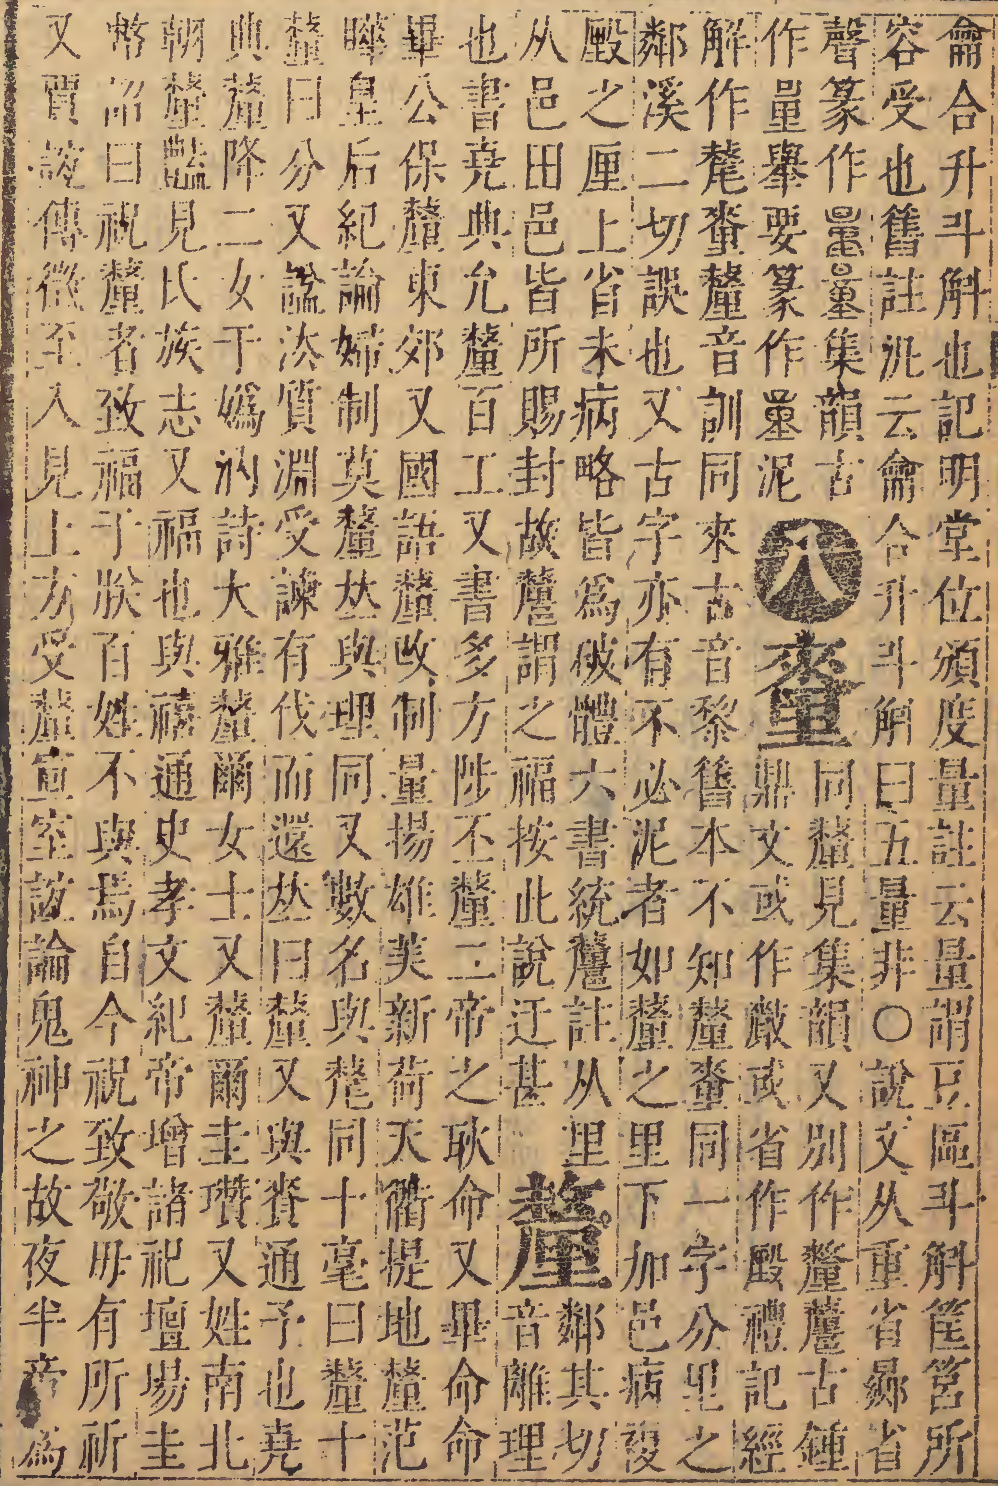 龠合升斗斛也記明堂位頒度量註云量謂豆區斗斛筐筥所
容受也舊註泥云龠合升斗斛曰五量非○說文从重省曏省
聲篆作𨤥量集韻古同釐見集韻又別作釐氂古鍾
作量舉要篆作量泥八𨤲鼎文或作𠩺或省作𠭰禮記經
解作氂𨤲釐音訓同來古音黎舊本不知釐𨤲同一字分里之
鄰溪二切誤也又古字亦有不必泥者如釐之里下加邑病複
𠭰之厘上省未病略皆為破體六書統氂註从里
从邑田邑皆所賜封故氂謂之福按此說迂甚釐鄰其切音離理
也書堯典允釐百工又書多方陟丕釐二帝之耿命又畢命命
畢公保釐東郊又國語釐改制量揚雄美新荷天衢提地釐范
曄皇后紀論婦制莫釐𠀤與理同又數名與氂同十毫曰釐十
釐曰分又謚法質淵受諫有伐而還𠀤曰釐又與賚通予也堯
典釐降二女于媯汭詩大雅釐爾女士又釐爾圭瓚又姓南北
朝釐豔見氏族志又福也與禧通史孝文紀帝增諸祀壇場圭
幣詔曰祝釐者致福于朕百姓不與焉自今祝致敬毋有所祈
又賈誼傳徵至入見上方受釐宣室誼論鬼神之故夜半帝為